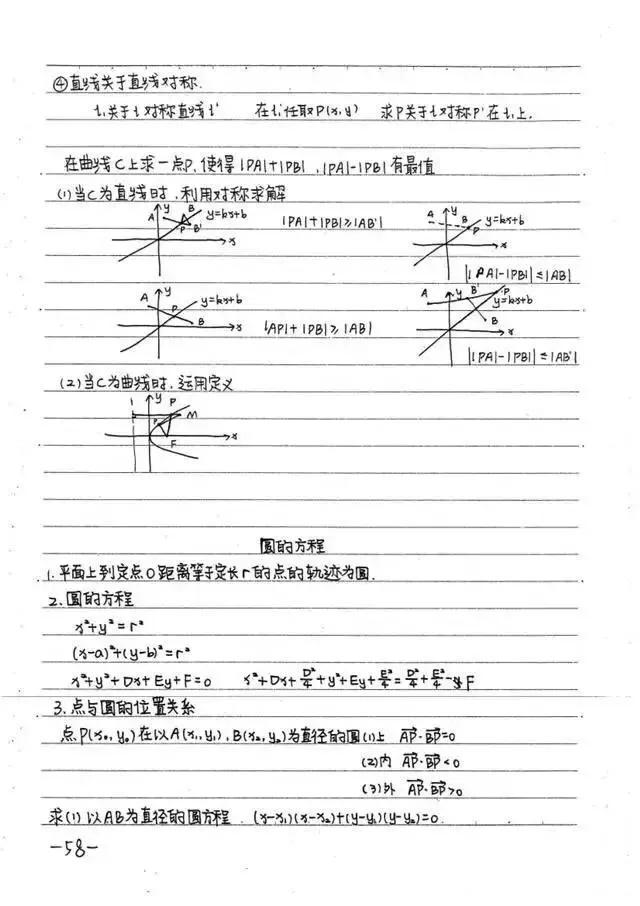 ④直线关于直线对称.
l₁关于l对称直线l' 在l₁任取P(x,y) 求P关于l对称P'在l₁上.
在曲线C上求一点P,使得|PA|+|PB|,|PA|-|PB|有最值
(1)当C为直线时,利用对称求解
A B y y=kx+b P B' x |PA|+|PB|≥|AB'| A y B P y=kx+b x
||PA|-|PB||≤|AB|
A y P y=kx+b B x |AP|+|PB|≥|AB| A y B' P y=kx+b B x
||PA|-|PB||≤|AB'|
(2)当C为曲线时,运用定义
y P M F x
圆的方程
1.平面上到定点O距离等于定长r的点的轨迹为圆.
2.圆的方程
x²+y²=r²
(x-a)²+(y-b)²=r²
x²+y²+Dx+Ey+F=0 x²+Dx+D²/4+y²+Ey+E²/4=D²/4+E²/4-F
3.点与圆的位置关系
点P(x₀,y₀)在以A(x₁,y₁),B(x₂,y₂)为直径的圆(1)上 AP·BP=0
(2)内 AP·BP<0
(3)外 AP·BP>0
求(1)以AB为直径的圆方程.(x-x₁)(x-x₂)+(y-y₁)(y-y₂)=0.
-58-